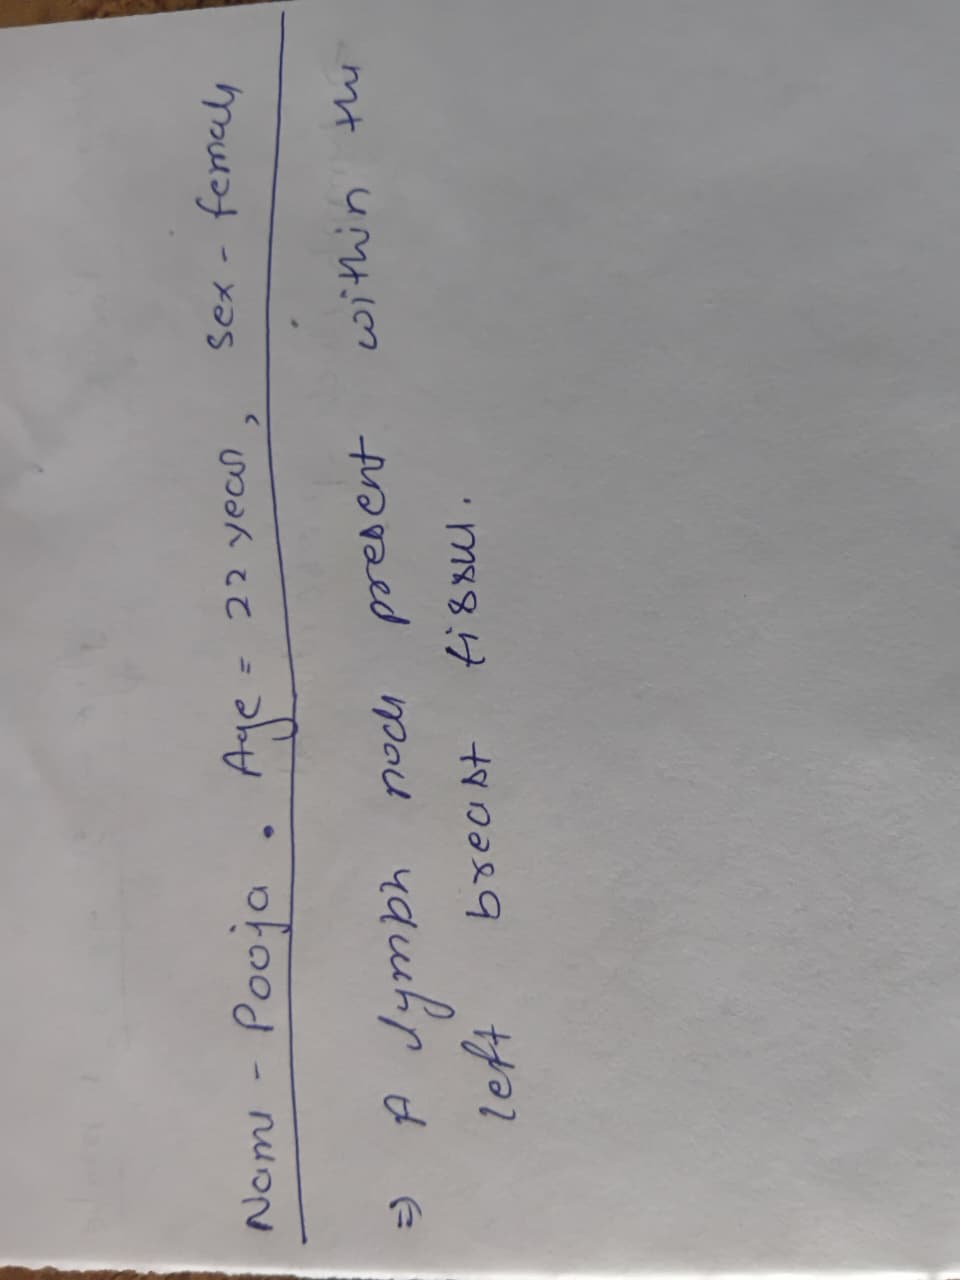 Name - Pooja . Age = 22 year, Sex - female
⇒ A lymph node present within the
left breast tissue.